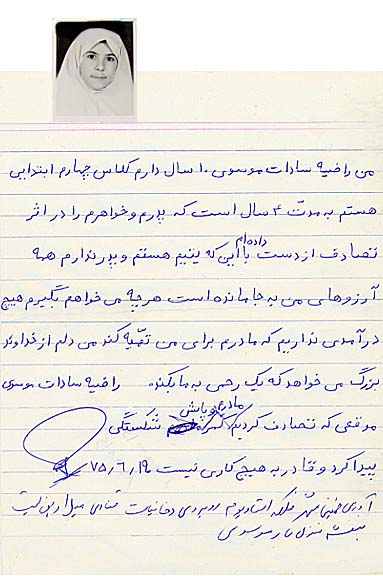 من راضیه سادات موسوی ۱۰ سال دارم کلاس چهارم ابتدایی
هستم به مدت ۴ سال است که پدرم و خواهرم را در اثر
تصادف از دست داده‌ام با این که یتیم هستم و پدر ندارم همه
آرزوهای من به جا مانده است هرچه می خواهم بگیرم هیچ
درآمدی نداریم که مادرم برای من تهیه کند من دلم از خداوند
بزرگ می خواهد که یک رحمی به ما بکند راضیه سادات موسوی
موقعی که تصادف کردیم کمر مادرم و پایش شکستگی
پیدا کرد و قادر به هیچ کاری نیست ۷۵/۶/۱۹
روبروی دخانیات
منزل